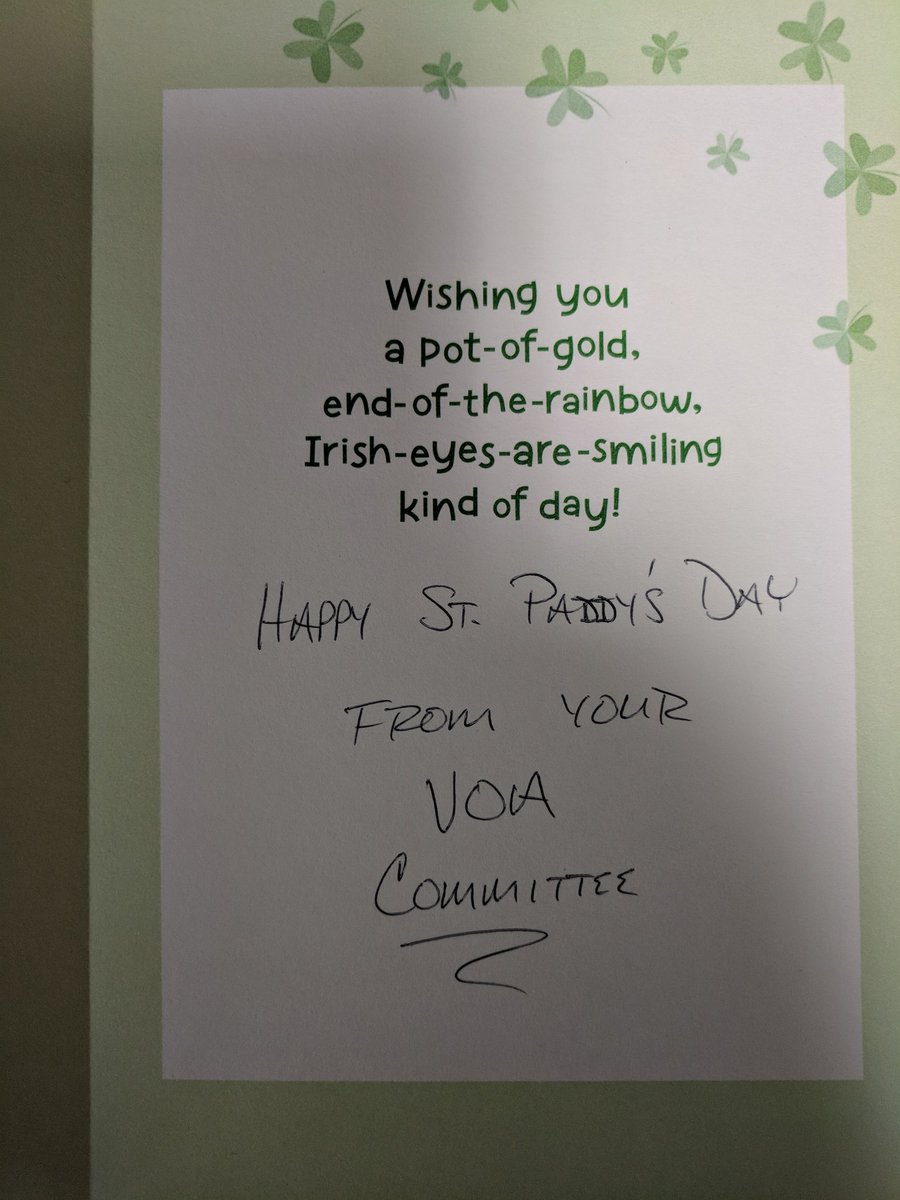 Wishing you
a pot-of-gold,
end-of-the-rainbow,
Irish-eyes-are-smiling
kind of day!
HAPPY ST. PADDY'S DAY
FROM YOUR
VOIA
COMMITTEE